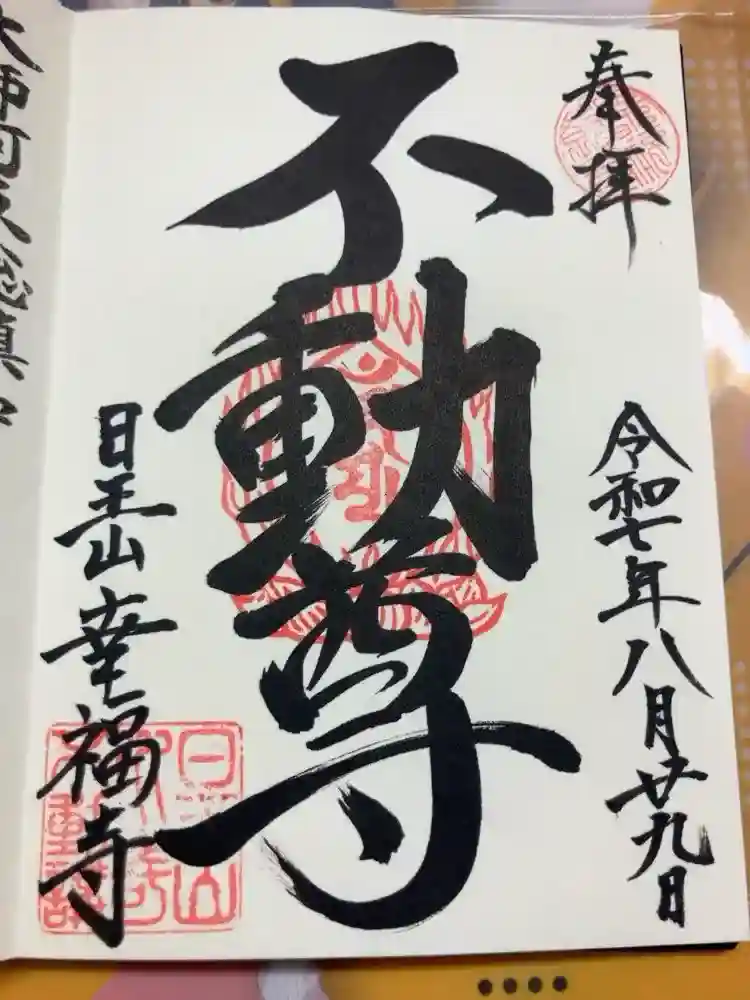 奉拝
令和七年八月廿九日
不動尊
日王山幸福寺